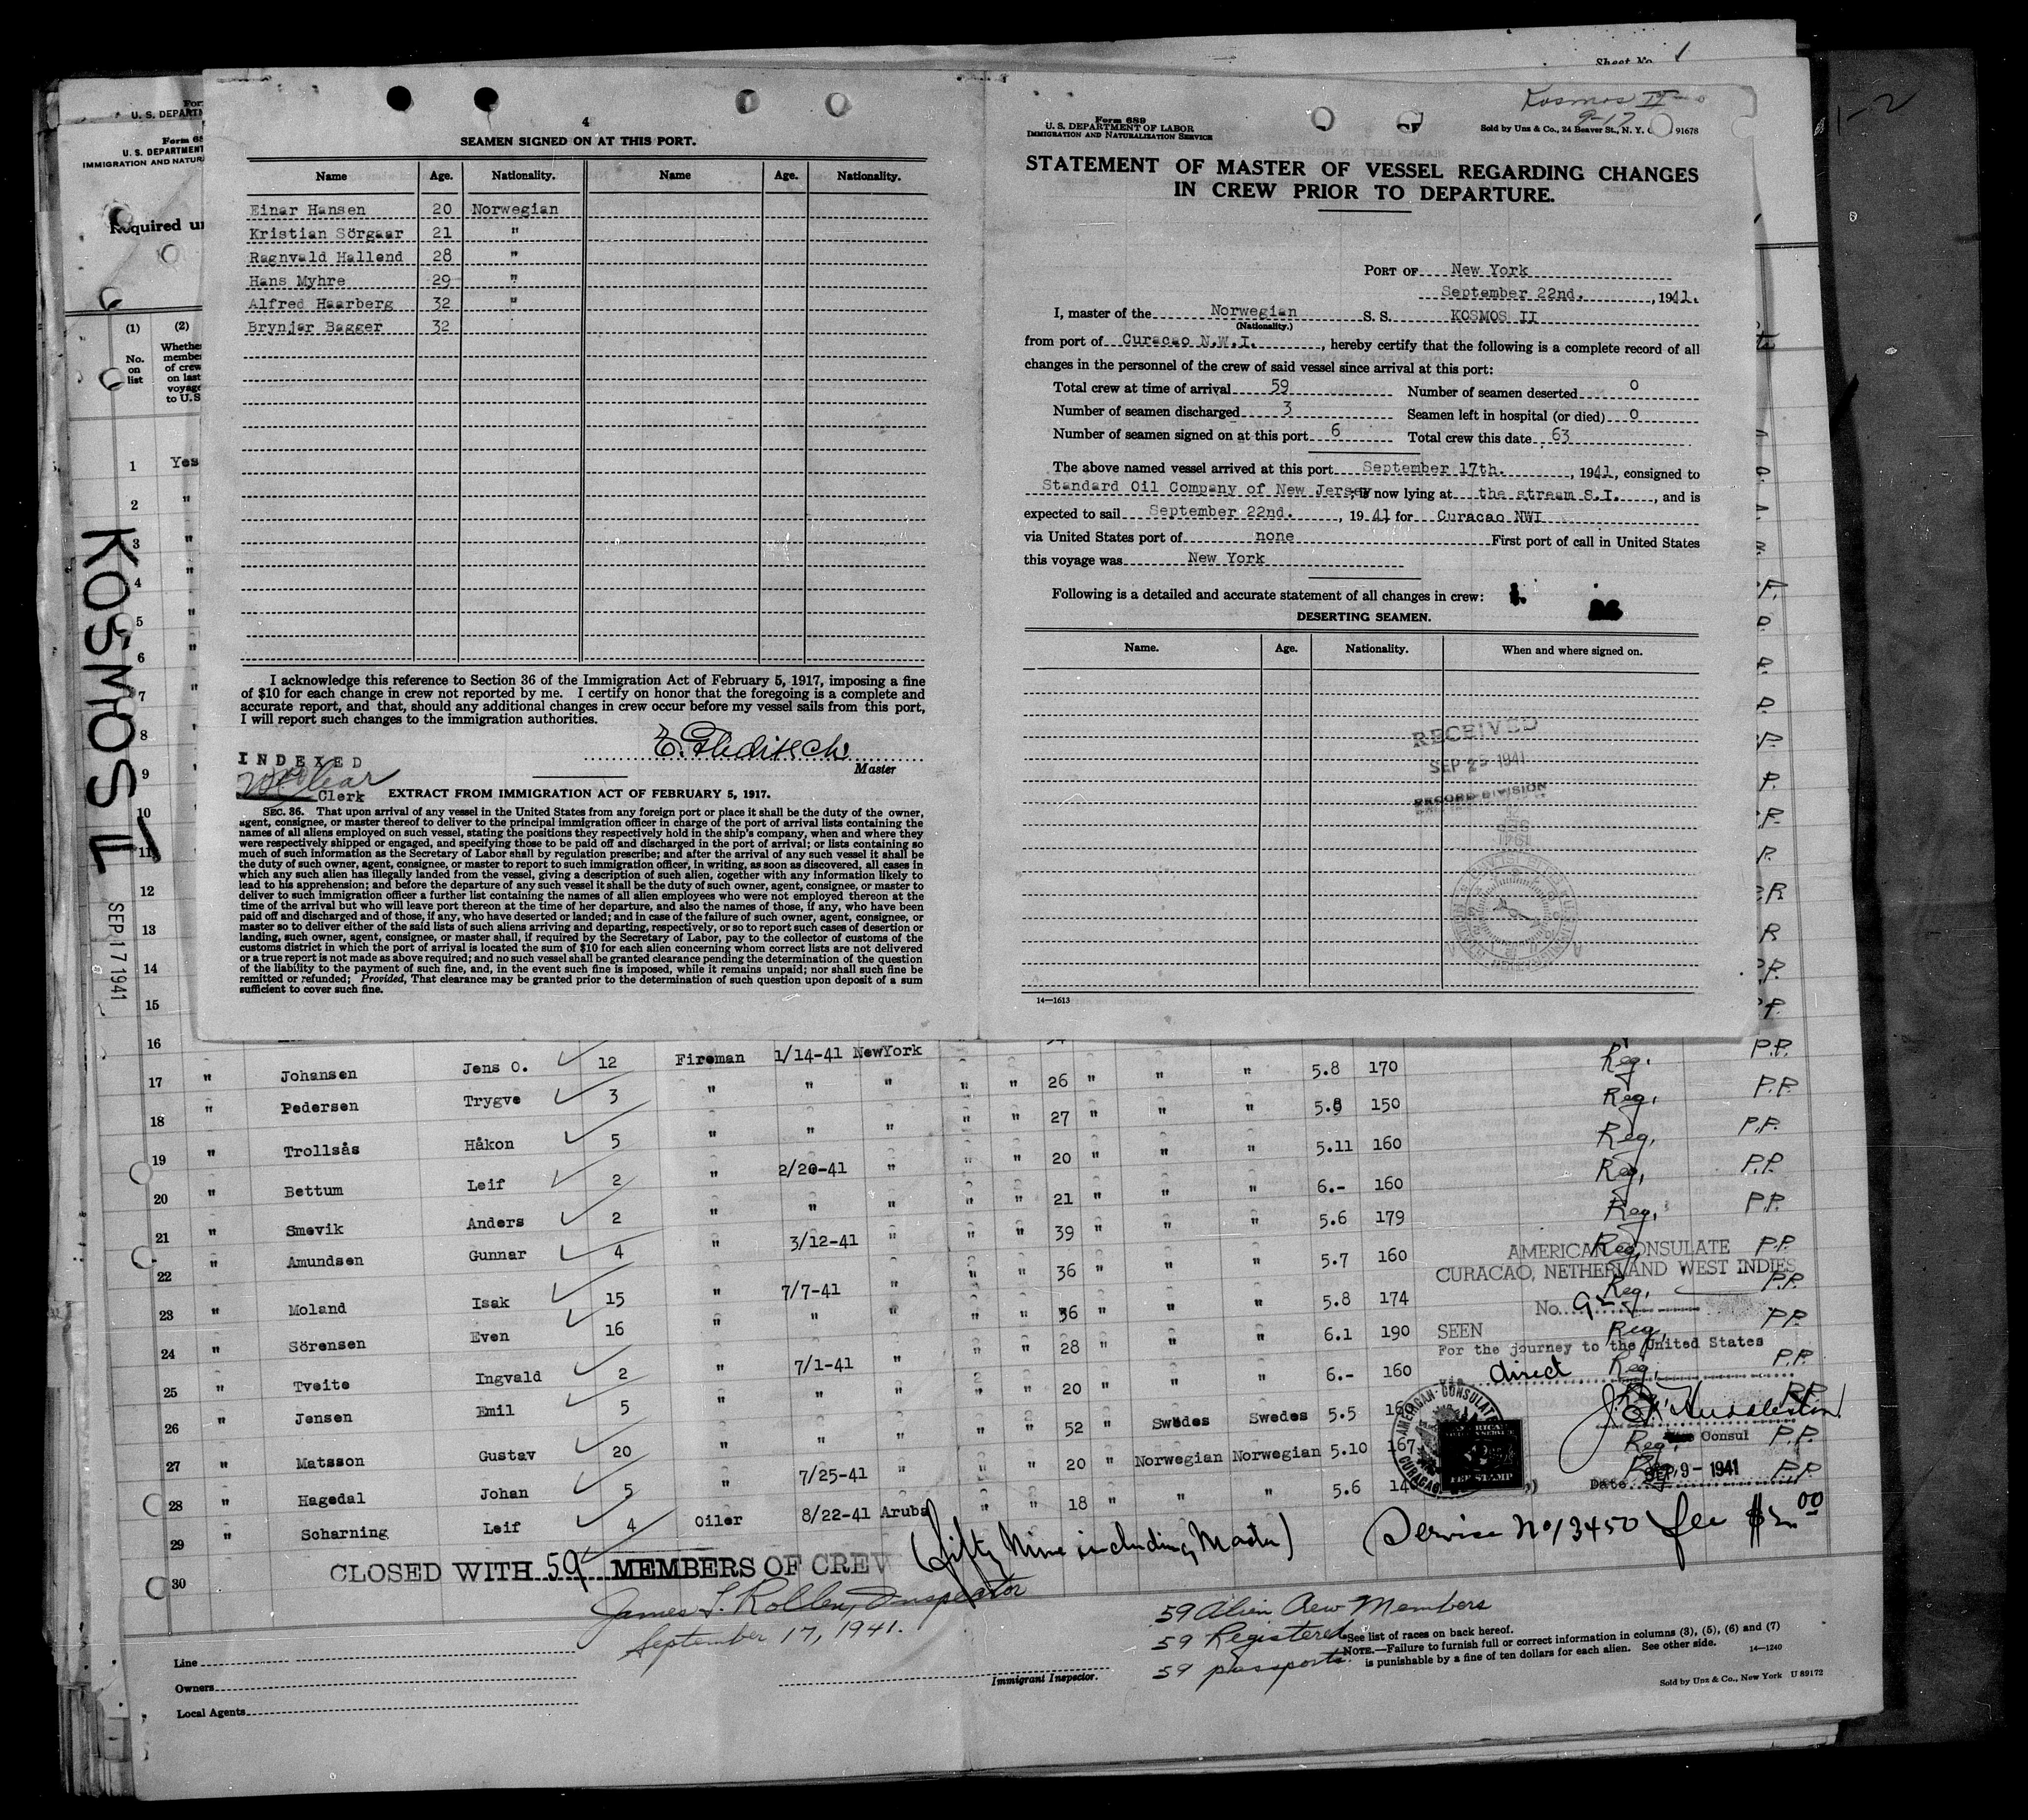 Sheet No. 1
4
SEAMEN SIGNED ON AT THIS PORT.
Name Age. Nationality. Name Age. Nationality.
Einar Hansen 20 Norwegian
Kristian Sörgaar 21 "
Ragnvald Hallend 28 "
Hans Myhre 29 "
Alfred Haarberg 32 "
Brynjar Bagger 32
I acknowledge this reference to Section 36 of the Immigration Act of February 5, 1917, imposing a fine
of $10 for each change in crew not reported by me. I certify on honor that the foregoing is a complete and
accurate report, and that, should any additional changes in crew occur before my vessel sails from this port,
I will report such changes to the immigration authorities.
E. Gleditsch
Master
INDEXED
Clerk
EXTRACT FROM IMMIGRATION ACT OF FEBRUARY 5, 1917.
SEC. 36. That upon arrival of any vessel in the United States from any foreign port or place it shall be the duty of the owner,
agent, consignee, or master thereof to deliver to the principal immigration officer in charge of the port of arrival lists containing the
names of all aliens employed on such vessel, stating the positions they respectively hold in the ship's company, when and where they
were respectively shipped or engaged, and specifying those to be paid off and discharged in the port of arrival; or lists containing so
much of such information as the Secretary of Labor shall by regulation prescribe; and after the arrival of any such vessel it shall be
the duty of such owner, agent, consignee, or master to report to such immigration officer, in writing, as soon as discovered, all cases in
which any such alien has illegally landed from the vessel, giving a description of such alien, together with any information likely to
lead to his apprehension; and before the departure of any such vessel it shall be the duty of such owner, agent, consignee, or master to
deliver to such immigration officer a further list containing the names of all alien employees who were not employed thereon at the
time of the arrival but who will leave port thereon at the time of her departure, and also the names of those, if any, who have been
paid off and discharged and of those, if any, who have deserted or landed; and in case of the failure of such owner, agent, consignee, or
master so to deliver either of the said lists of such aliens arriving and departing, respectively, or so to report such cases of desertion or
landing, such owner, agent, consignee, or master shall, if required by the Secretary of Labor, pay to the collector of customs of the
customs district in which the port of arrival is located the sum of $10 for each alien concerning whom correct lists are not delivered
or a true report is not made as above required; and no such vessel shall be granted clearance pending the determination of the question
of the liability to the payment of such fine, and, in the event such fine is imposed, while it remains unpaid; nor shall such fine be
remitted or refunded; Provided, That clearance may be granted prior to the determination of such question upon deposit of a sum
sufficient to cover such fine.
Kosmos II
9-17
Form 689
U. S. DEPARTMENT OF LABOR
IMMIGRATION AND NATURALIZATION SERVICE
Sold by Unz & Co., 24 Beaver St., N. Y. 91678
STATEMENT OF MASTER OF VESSEL REGARDING CHANGES
IN CREW PRIOR TO DEPARTURE.
PORT OF New York
September 22nd. , 1941.
I, master of the Norwegian S. S. KOSMOS II
(Nationality.)
from port of Curacao N.W.I. , hereby certify that the following is a complete record of all
changes in the personnel of the crew of said vessel since arrival at this port:
Total crew at time of arrival 59 Number of seamen deserted 0
Number of seamen discharged 3 Seamen left in hospital (or died) 0
Number of seamen signed on at this port 6 Total crew this date 63
The above named vessel arrived at this port September 17th. , 1941, consigned to
Standard Oil Company of New Jersey, is now lying at the stream S.I. , and is
expected to sail September 22nd. , 1941 for Curacao NWI
via United States port of none First port of call in United States
this voyage was New York
Following is a detailed and accurate statement of all changes in crew:
DESERTING SEAMEN.
Name. Age. Nationality. When and where signed on.
RECEIVED
SEP 25 1941
RECORD DIVISION
14—1613
1-2
U. S. DEPARTM
Form 68
U. S. DEPARTMENT
IMMIGRATION AND NATUR
Required un
(1) (2)
No. on list
Whether member of crew on last voyage to U.S.
KOSMOS II
SEP 17 1941
1 Yes
2 "
3 "
4 "
5 "
6 "
7
8
9
10
11
12
13
14
15
16
17 " Johansen Jens O. 12 Fireman 1/14-41 NewYork " " 26 " " " 5.8 170 Reg. P.P.
18 " Pedersen Trygve 3 " " " " " 27 " " " 5.8 150 Reg. P.P.
19 " Trollsås Håkon 5 " " " " " 20 " " " 5.11 160 Reg. P.P.
20 " Bettum Leif 2 " 2/20-41 " " " 21 " " " 6.- 160 Reg. P.P.
21 " Smevik Anders 2 " " " " " 39 " " " 5.6 179 Reg. P.P.
22 " Amundsen Gunnar 4 " 3/12-41 " " " 36 " " " 5.7 160 Reg. P.P.
23 " Moland Isak 15 " 7/7-41 " " " 36 " " " 5.8 174 Reg. P.P.
24 " Sörensen Even 16 " " " " " 28 " " " 6.1 190 Reg. P.P.
25 " Tveite Ingvald 2 " 7/1-41 " " " 20 " " " 6.- 160 Reg. P.P.
26 " Jensen Emil 5 " " " " " 52 " Swedes Swedes 5.5 P.P.
27 " Matsson Gustav 20 " " " " " 20 " Norwegian Norwegian 5.10 167 Reg. P.P.
28 " Hagedal Johan 5 " 7/25-41 " " " 18 " " " 5.6 Reg. P.P.
29 " Scharning Leif 4 Oiler 8/22-41 Aruba
30
AMERICAN CONSULATE
CURACAO, NETHERLAND WEST INDIES
No.
SEEN
For the journey to the United States
via direct
AMERICAN CONSULATE
CURACAO
FEE STAMP
Consul
Date SEP 9 - 1941
Service No 13450 fee $2.00
CLOSED WITH 59 MEMBERS OF CREW
(fifty Nine including Master)
James L. Rollen, Inspector
September 17, 1941.
59 Alien Crew Members
59 Registered
59 passports.
See list of races on back hereof.
NOTE.—Failure to furnish full or correct information in columns (3), (5), (6) and (7)
is punishable by a fine of ten dollars for each alien. See other side. 14—1240
Line
Owners
Local Agents
Immigrant Inspector.
Sold by Unz & Co., New York U 89172